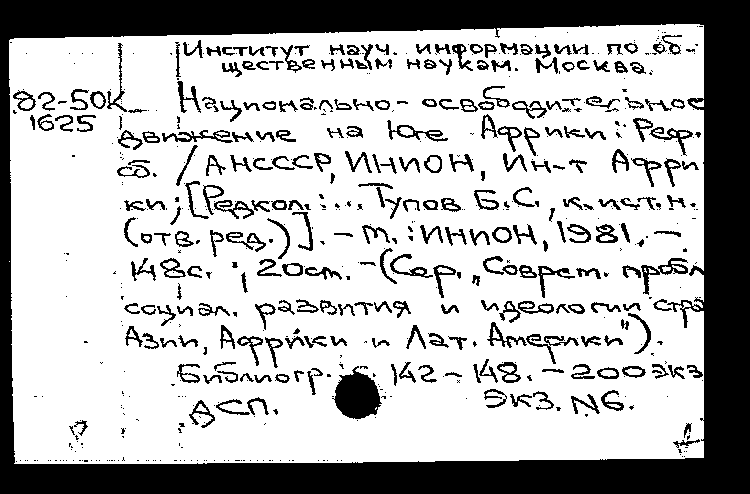 Институт науч. информации по об-
щественным наукам. Москва.
82-50К Национально-освободительное
1625 движение на Юге Африки: Реф.
сб. / АНСССР, ИНИОН, Ин-т Афри
ки; [Редкол.:... Тупов Б.С., к.ист.н.
(отв. ред.)]. - М.: ИНИОН, 1981. -
148с.; 20см. - (Сер. „Соврем. пробл
социал. развития и идеологии стра
Азии, Африки и Лат. Америки").
Библиогр. с. 142-148. - 200 экз
ДСП. Экз. №6.